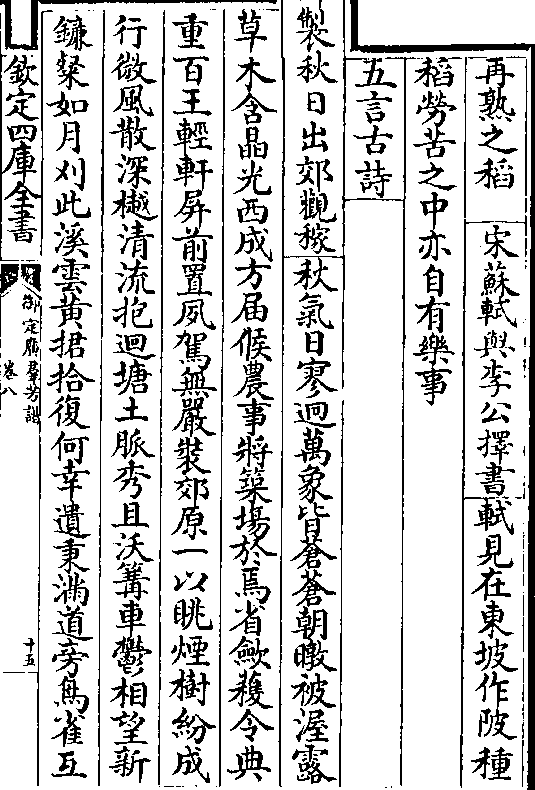 再熟之稻　宋蘇軾與李公擇書軾見在東坡作陂種
稻勞苦之中亦自有樂事
五言古詩
製秋日出郊觀稼秋氣日寥迥萬象皆蒼蒼朝暾被渥露
草木含晶光西成方届候農事將築場於焉省歛穫令典
重百王輕軒屏前置夙駕無嚴裝郊原一以眺煙樹紛成
行微風散深樾清流抱迴塘土脈秀且沃篝車鬱相望新
鐮粲如月刈此溪雲黄捃拾復何幸遺秉滿道旁鳥雀互
欽定四庫全書
御定廣羣芳譜
卷八
十五